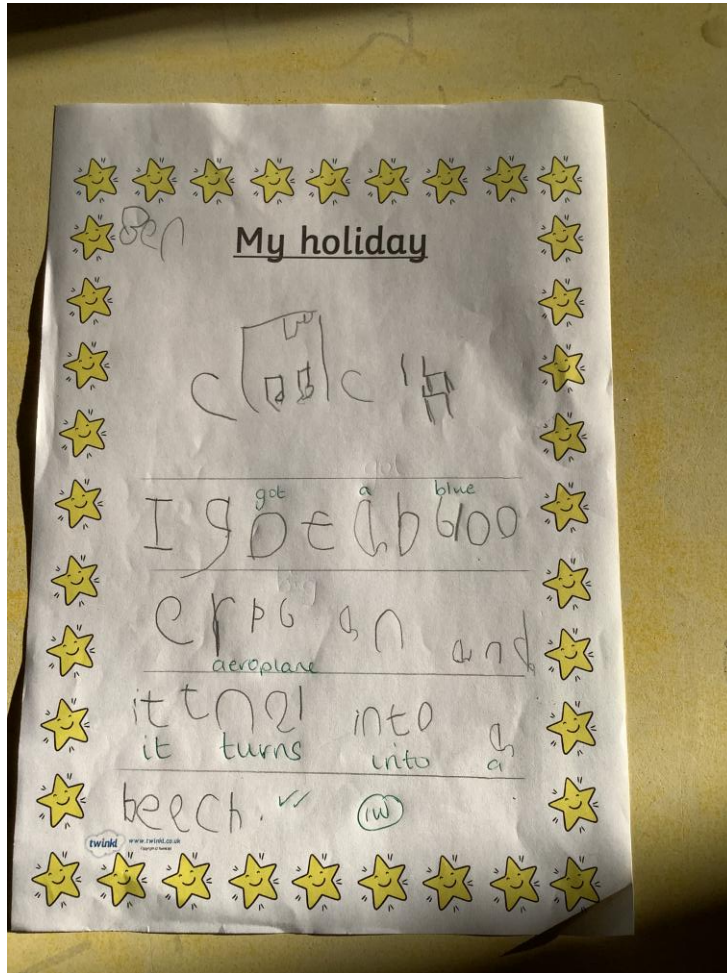 Ben
My holiday
got a blue
I got a b bloo
erpl an and
aeroplane
it tnsl into a
it turns into a
beech. ✓✓ IW
twinkl www.twinkl.co.uk